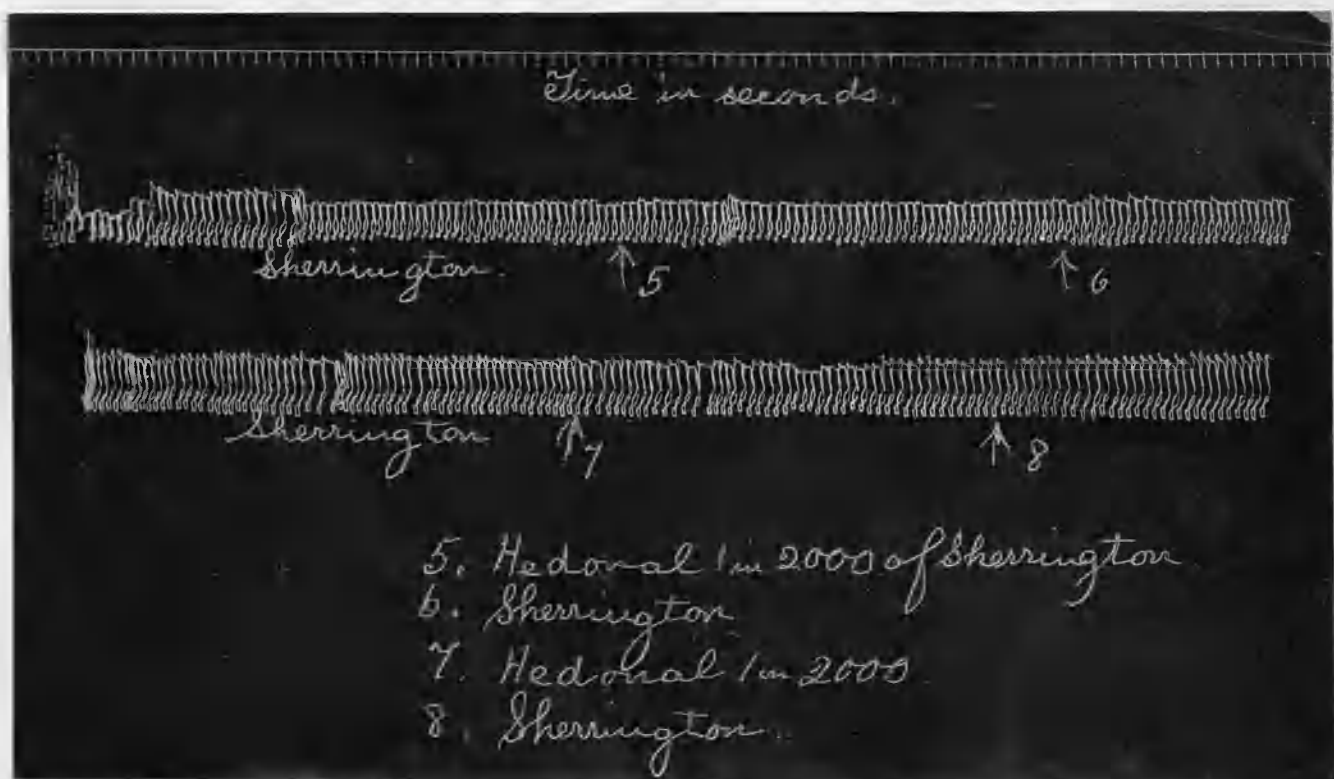 Time in seconds.
Sherrington.
5
6
Sherrington
7
8
5. Hedonal 1 in 2000 of Sherrington
6. Sherrington
7. Hedonal 1 in 2000
8. Sherrington.